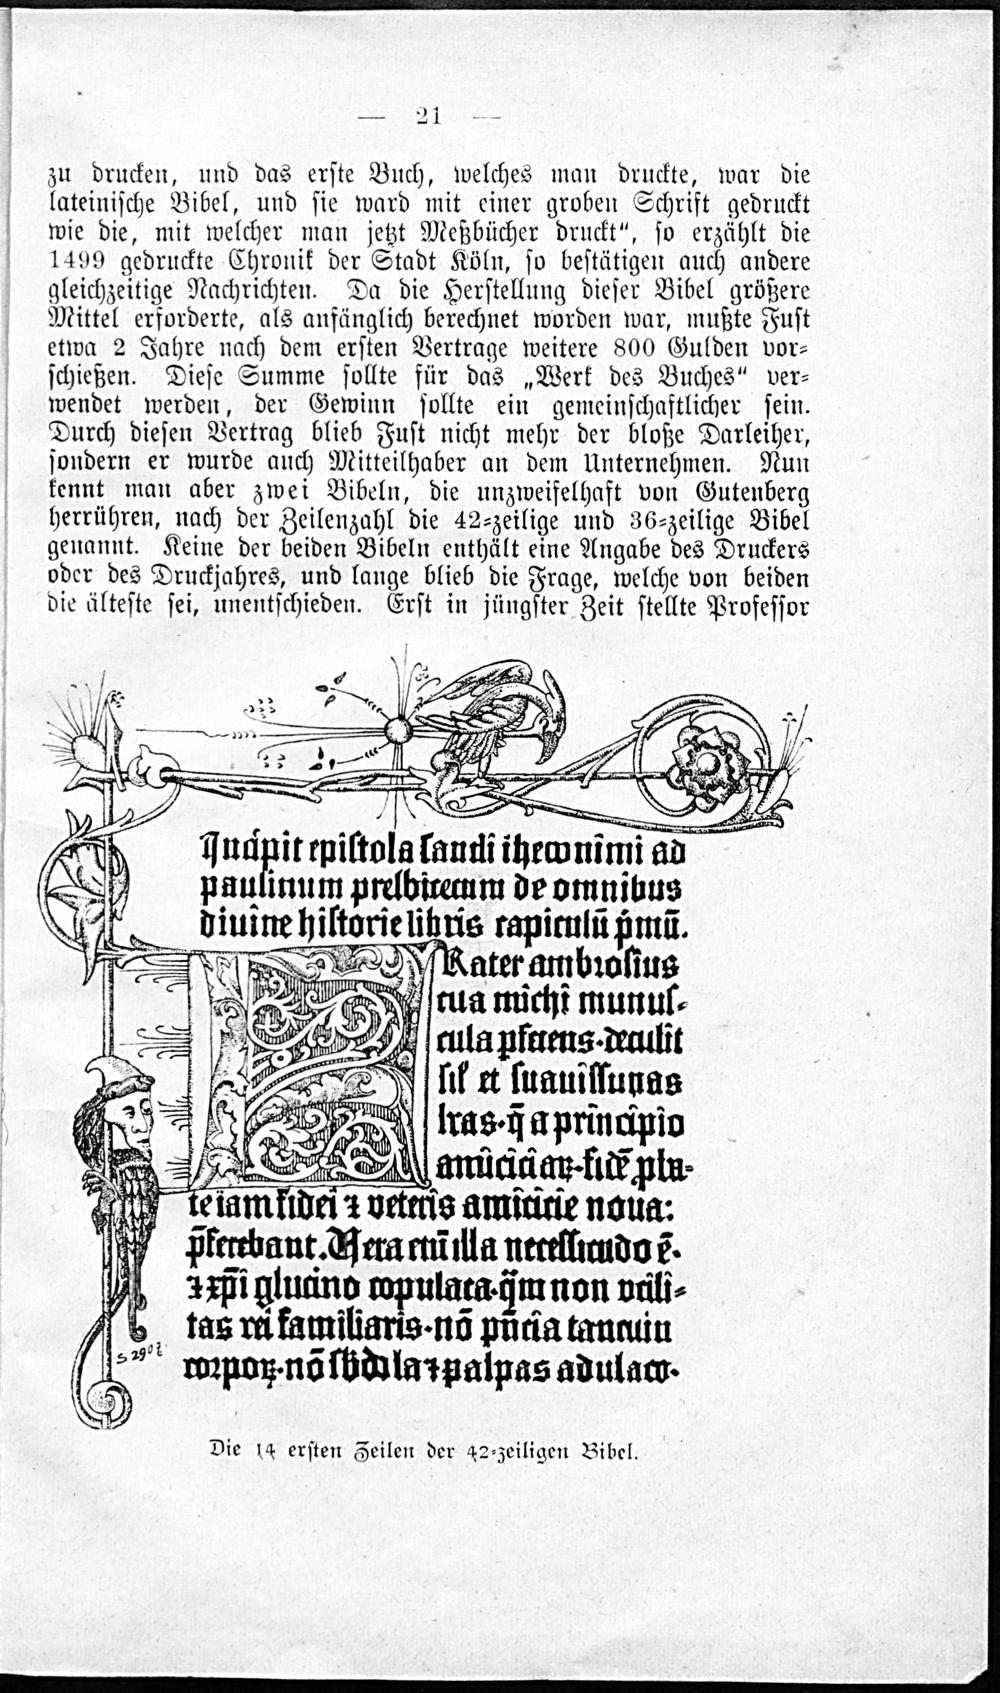 — 21 —
zu drucken, und das erste Buch, welches man druckte, war die
lateinische Bibel, und sie ward mit einer groben Schrift gedruckt
wie die, mit welcher man jetzt Meßbücher druckt“, so erzählt die
1499 gedruckte Chronik der Stadt Köln, so bestätigen auch andere
gleichzeitige Nachrichten. Da die Herstellung dieser Bibel größere
Mittel erforderte, als anfänglich berechnet worden war, mußte Fust
etwa 2 Jahre nach dem ersten Vertrage weitere 800 Gulden vor-
schießen. Diese Summe sollte für das „Werk des Buches“ ver-
wendet werden, der Gewinn sollte ein gemeinschaftlicher sein.
Durch diesen Vertrag blieb Fust nicht mehr der bloße Darleiher,
sondern er wurde auch Mitteilhaber an dem Unternehmen. Nun
kennt man aber zwei Bibeln, die unzweifelhaft von Gutenberg
herrühren, nach der Zeilenzahl die 42-zeilige und 36-zeilige Bibel
genannt. Keine der beiden Bibeln enthält eine Angabe des Druckers
oder des Druckjahres, und lange blieb die Frage, welche von beiden
die älteste sei, unentschieden. Erst in jüngster Zeit stellte Professor
Incipit epistola sancti iheronimi ad
paulinum presbiterum de omnibus
diuine historie libris capitulū p̄mū.
F Rater ambrosius
tua michi munus-
cula pferens·detulit
sil' et suauissimas
lras·q̄ a principio
amiciciaꝝ·fidē pba-
te iam fidei ⁊ veteris amicicie noua:
p̄ferebant. Vera enī illa necessitudo ē·
⁊ xp̄i glutino copulata·q̄m non vtili-
tas rei familiaris·nō pn̄cia tantum
corpoꝝ·nō sb̄dola ⁊ palpās adulaco·
S 2907
Die 14 ersten Zeilen der 42-zeiligen Bibel.